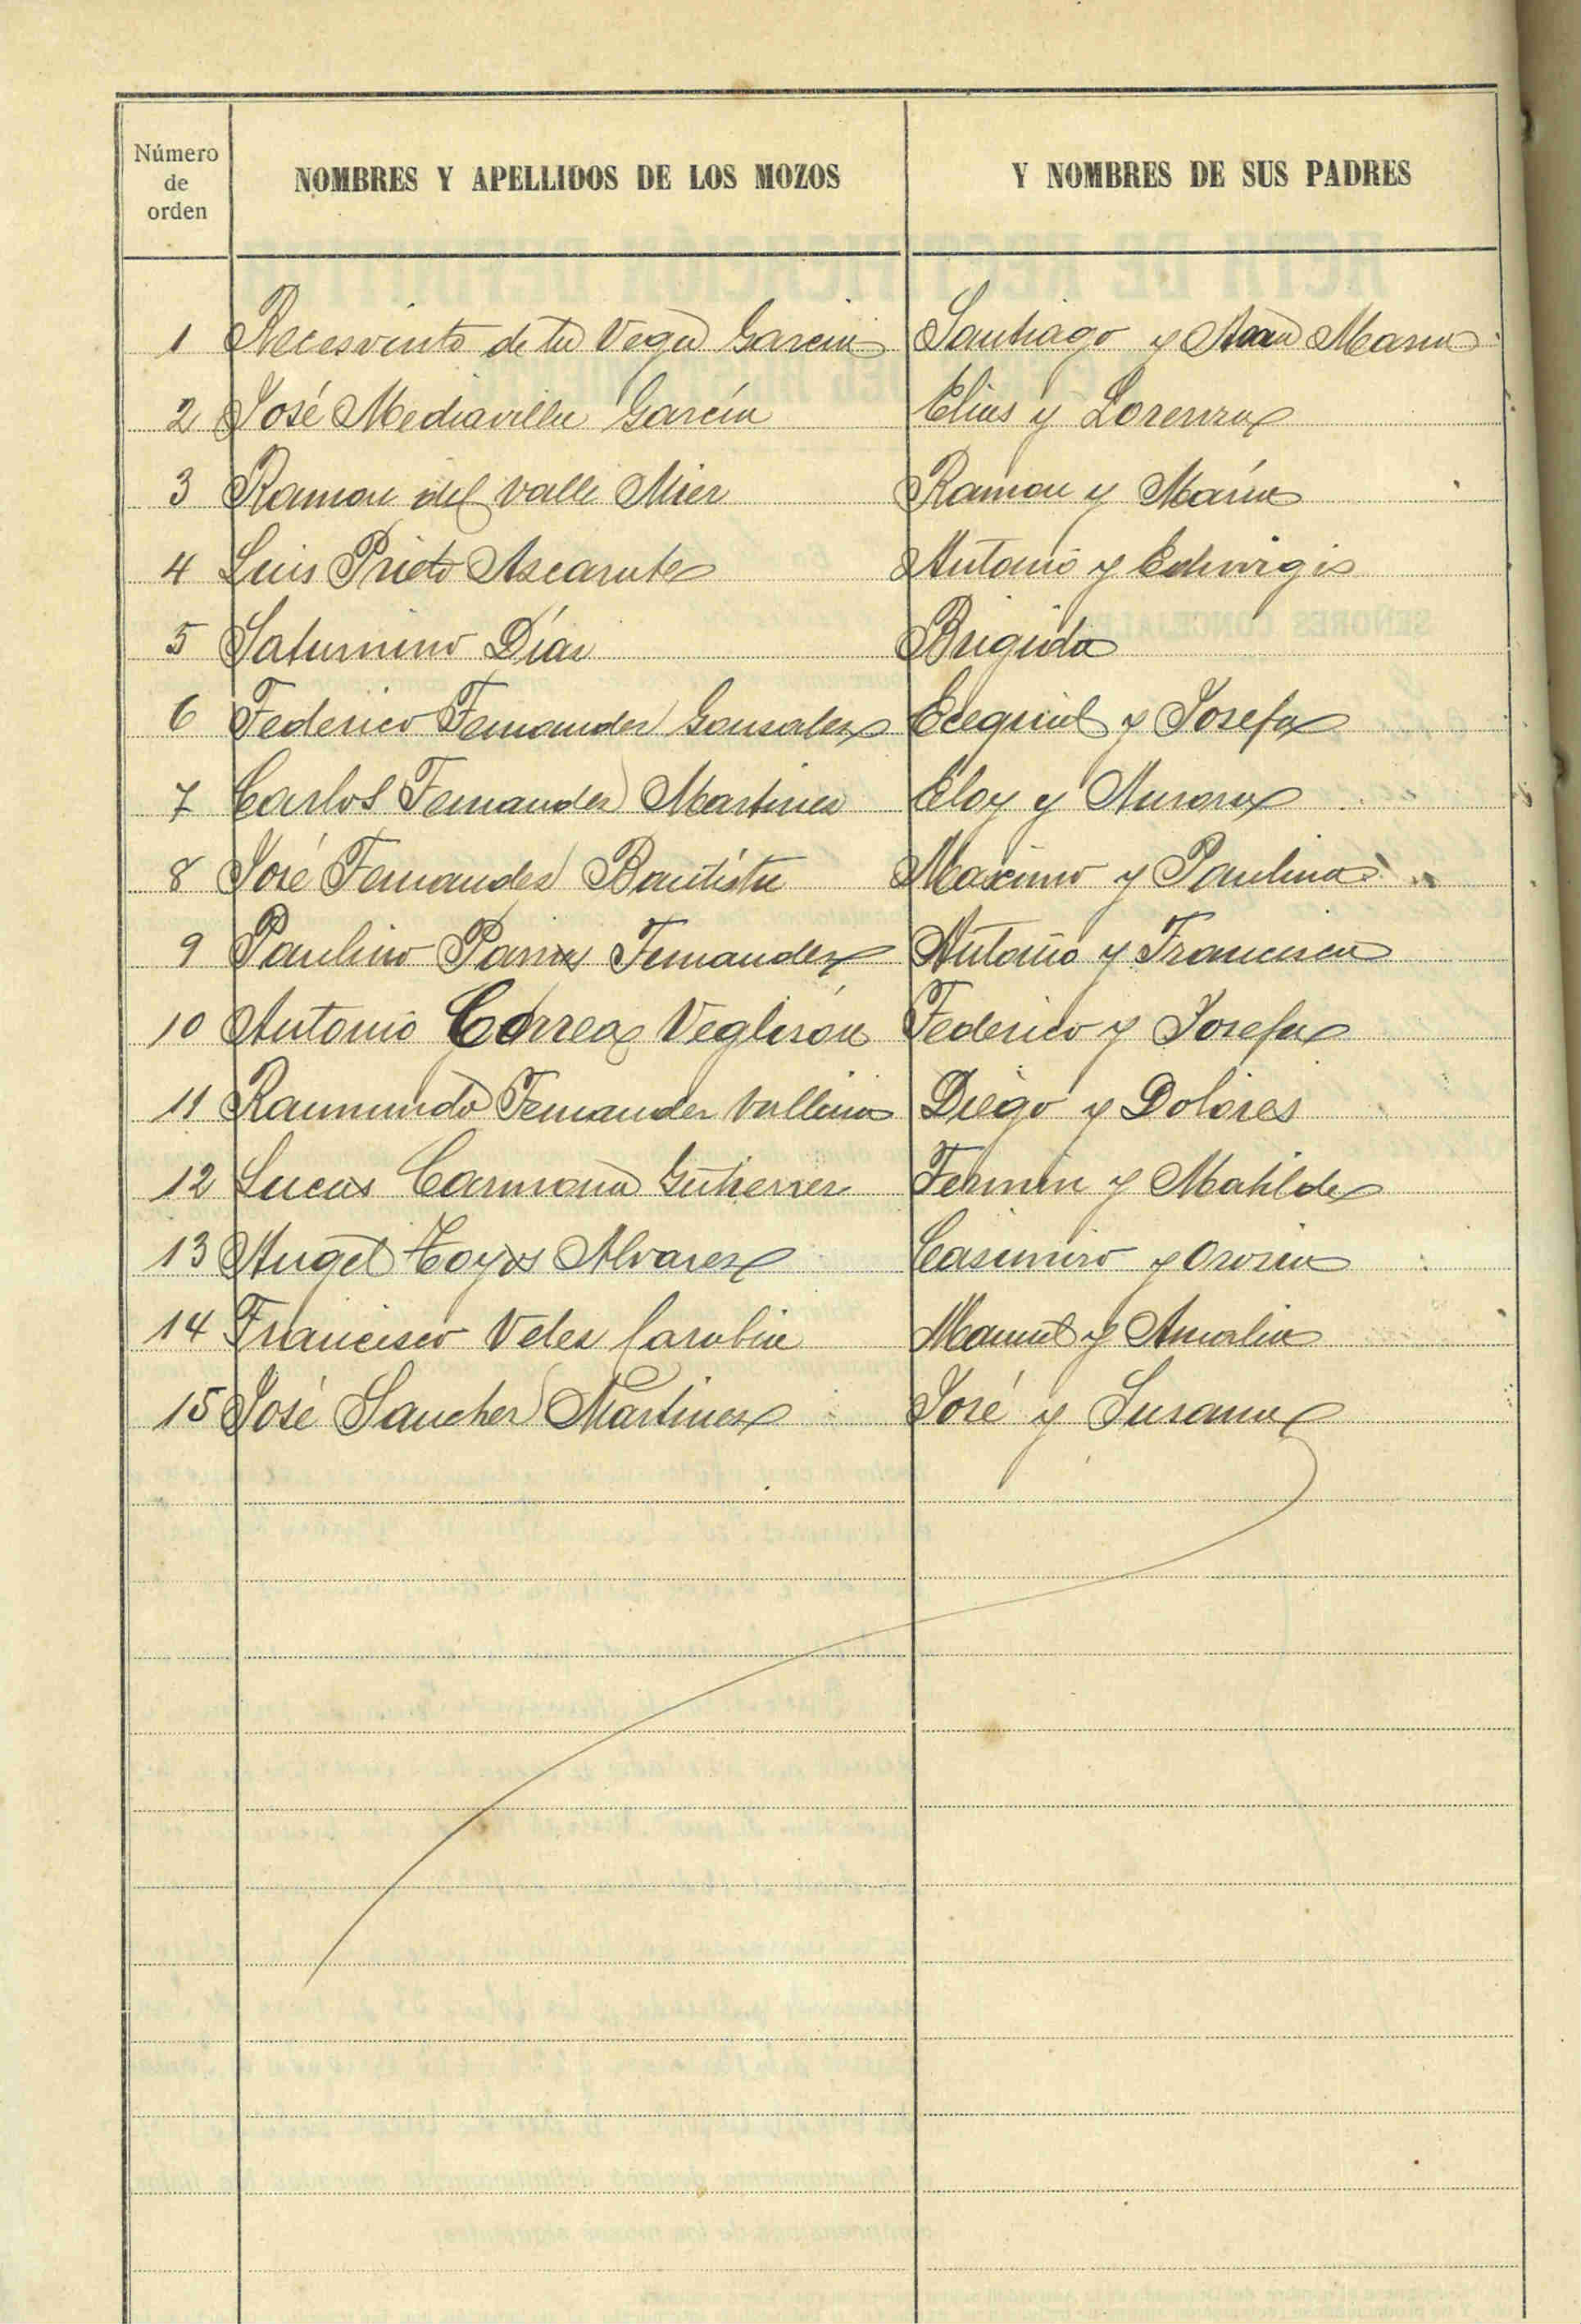 Número de orden NOMBRES Y APELLIDOS DE LOS MOZOS Y NOMBRES DE SUS PADRES
1 Recesvinto de la Vega Garcia Santiago y Ana Maria
2 José Mediavilla García Elias y Lorenza
3 Ramon del Valle Mier Ramon y María
4 Luis Prieto Ascarate Antonio y Eduvigis
5 Saturnino Díaz Brigida
6 Federico Fernandez Gonzalez Ecequiel y Josefa
7 Carlos Fernandez Martinez Eloy y Aurora
8 José Fernandez Bautista Maximo y Paulina
9 Paulino Parra Fernandez Antonio y Francisca
10 Antonio Correa Veglisón Federico y Josefa
11 Raimundo Fernandez Vallina Diego y Dolores
12 Lucas Carmona Gutierrez Fermin y Matilde
13 Angel Toyos Alvarez Casimiro y
14 Francisco Velez Carabia Manuel y Amalia
15 José Sanchez Martinez José y Susana